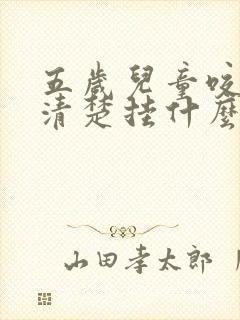 五歲兒童咬
清楚挂什麼
山田孝太郎